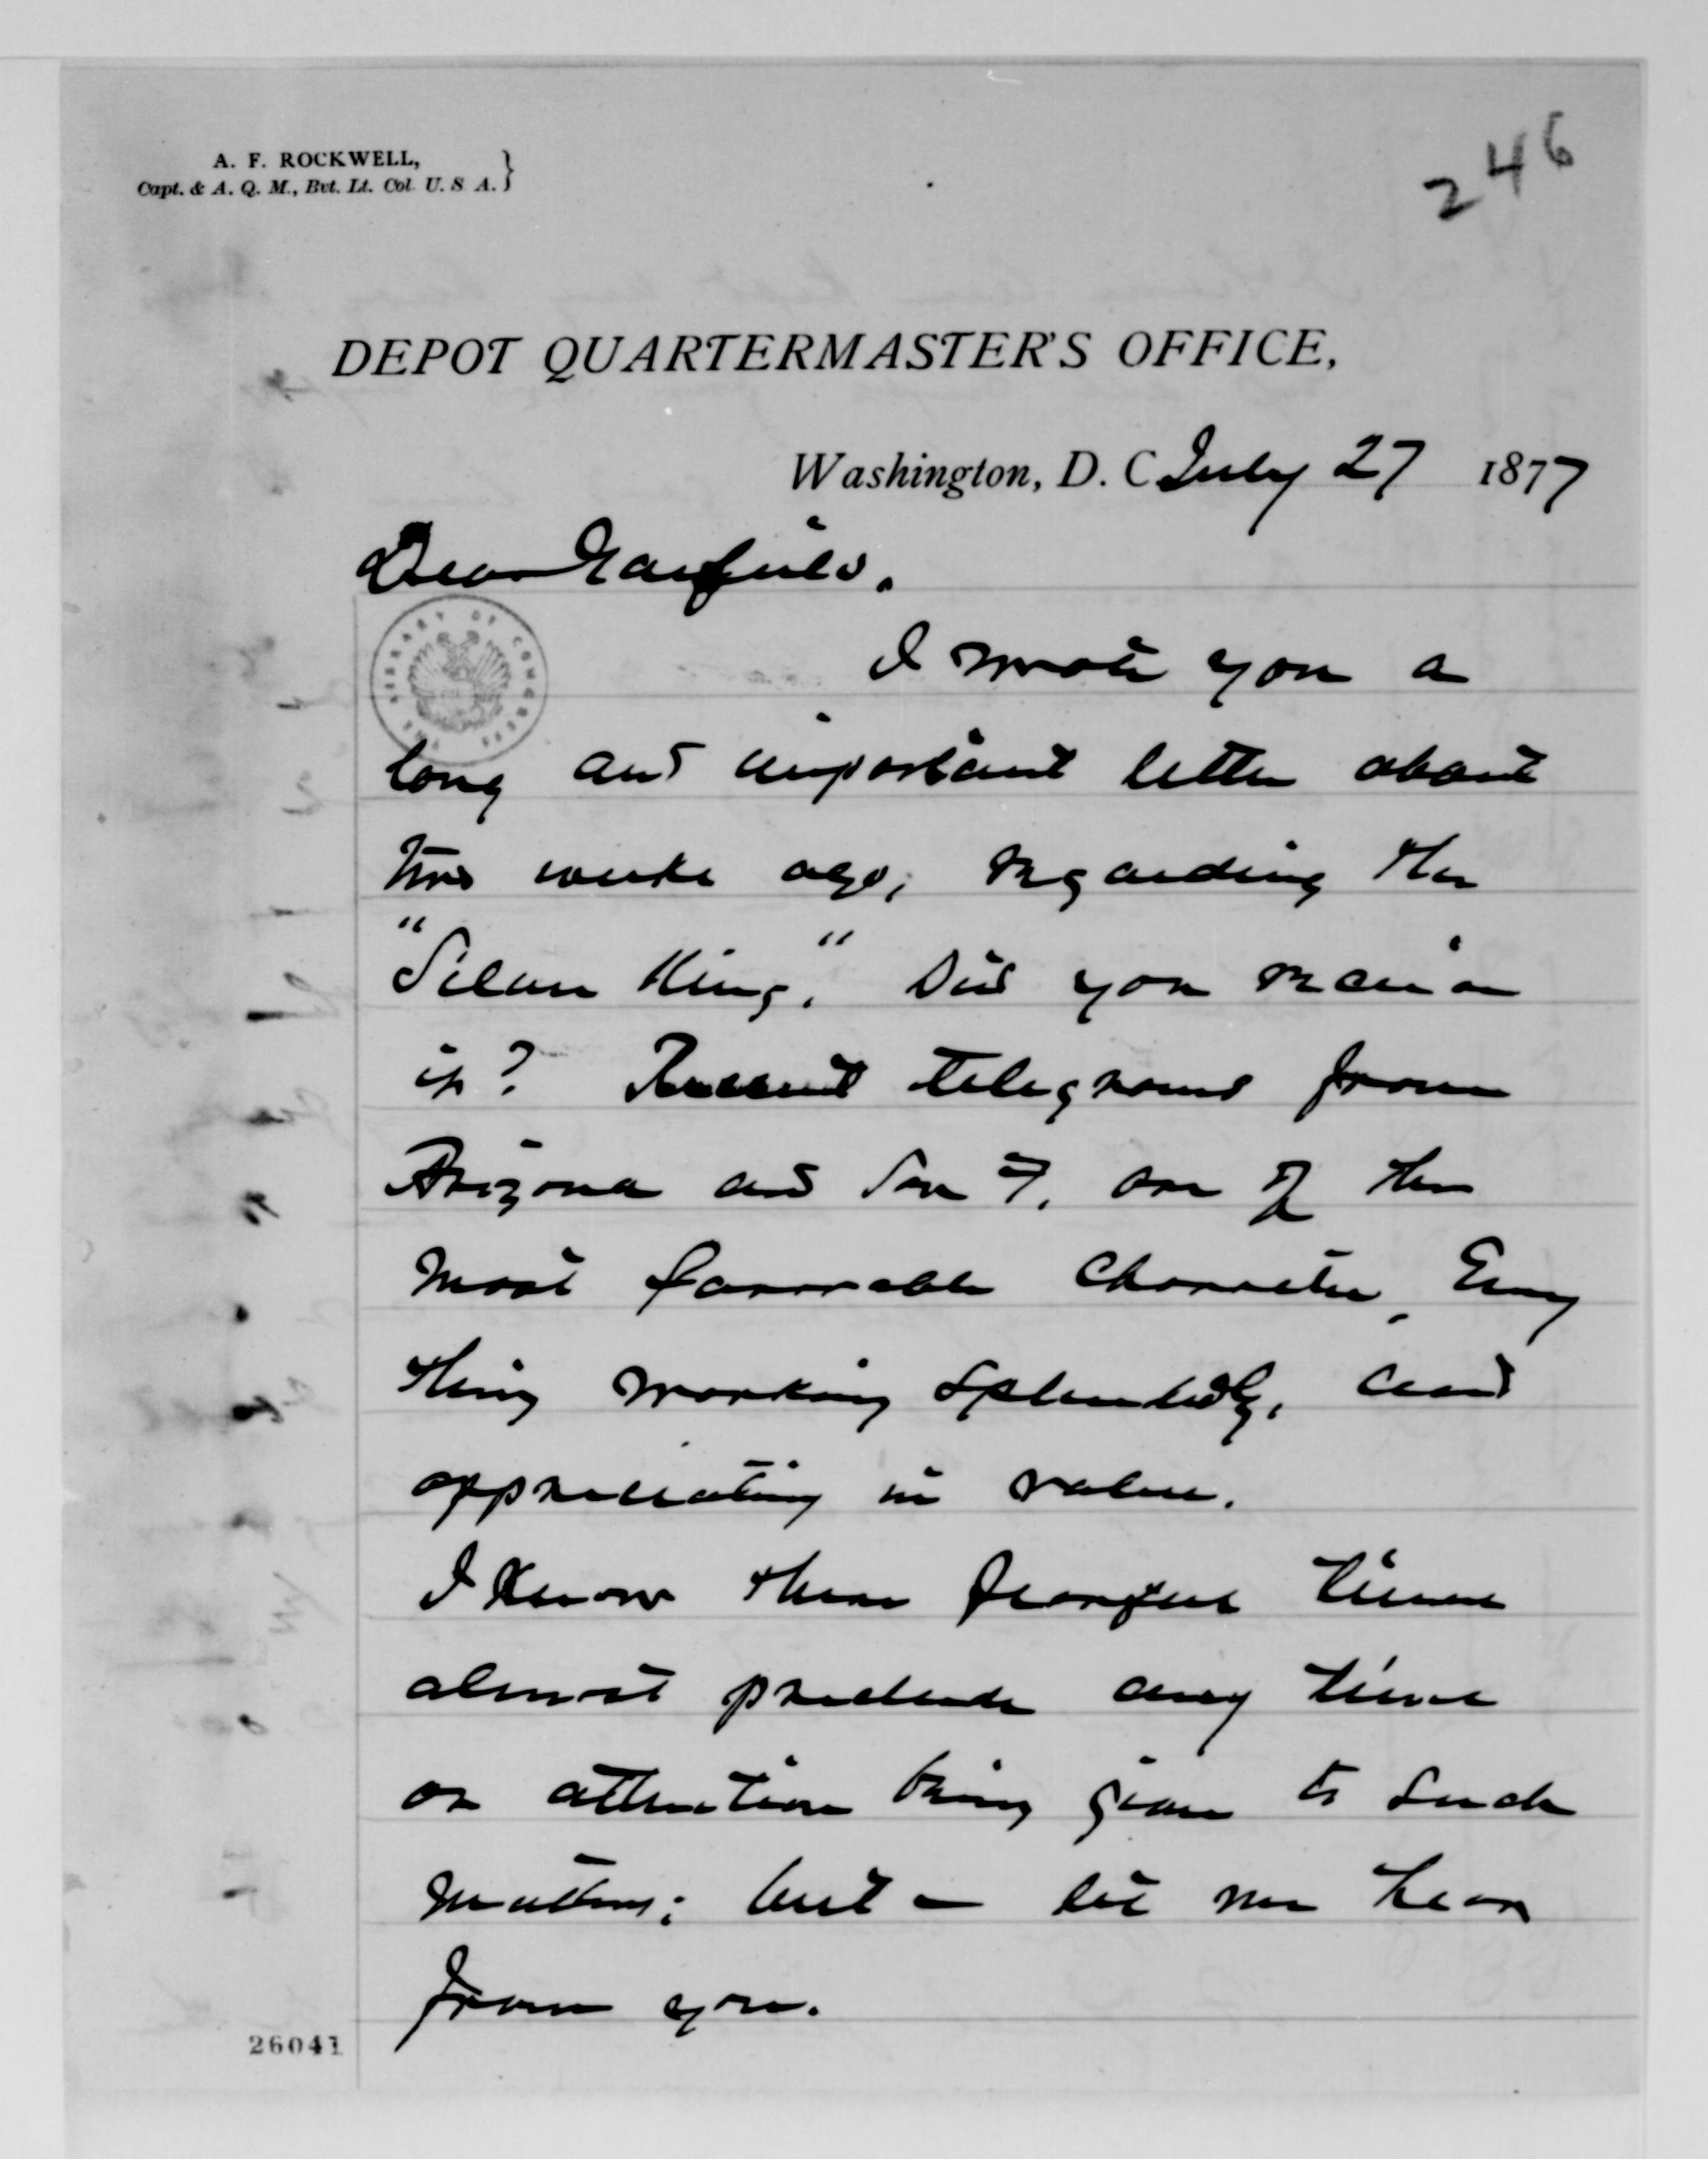 246
A. F. ROCKWELL,
Capt. & A. Q. M., Bvt. Lt. Col. U. S. A.}
DEPOT QUARTERMASTER'S OFFICE,
Washington, D. C. July 27 1877
Dear Garfield.
THE LIBRARY OF CONGRESS
I wrote you a
long and important letter about
two weeks ago, regarding the
"Silver King." Did you receive
it? Recent telegrams from
Arizona and San F. are of the
most favorable character, Every
thing working splendidly, and
appreciating in value.
I know these fearful times
almost preclude any time
or attention being given to such
matters; but — let me hear
from you.
26041